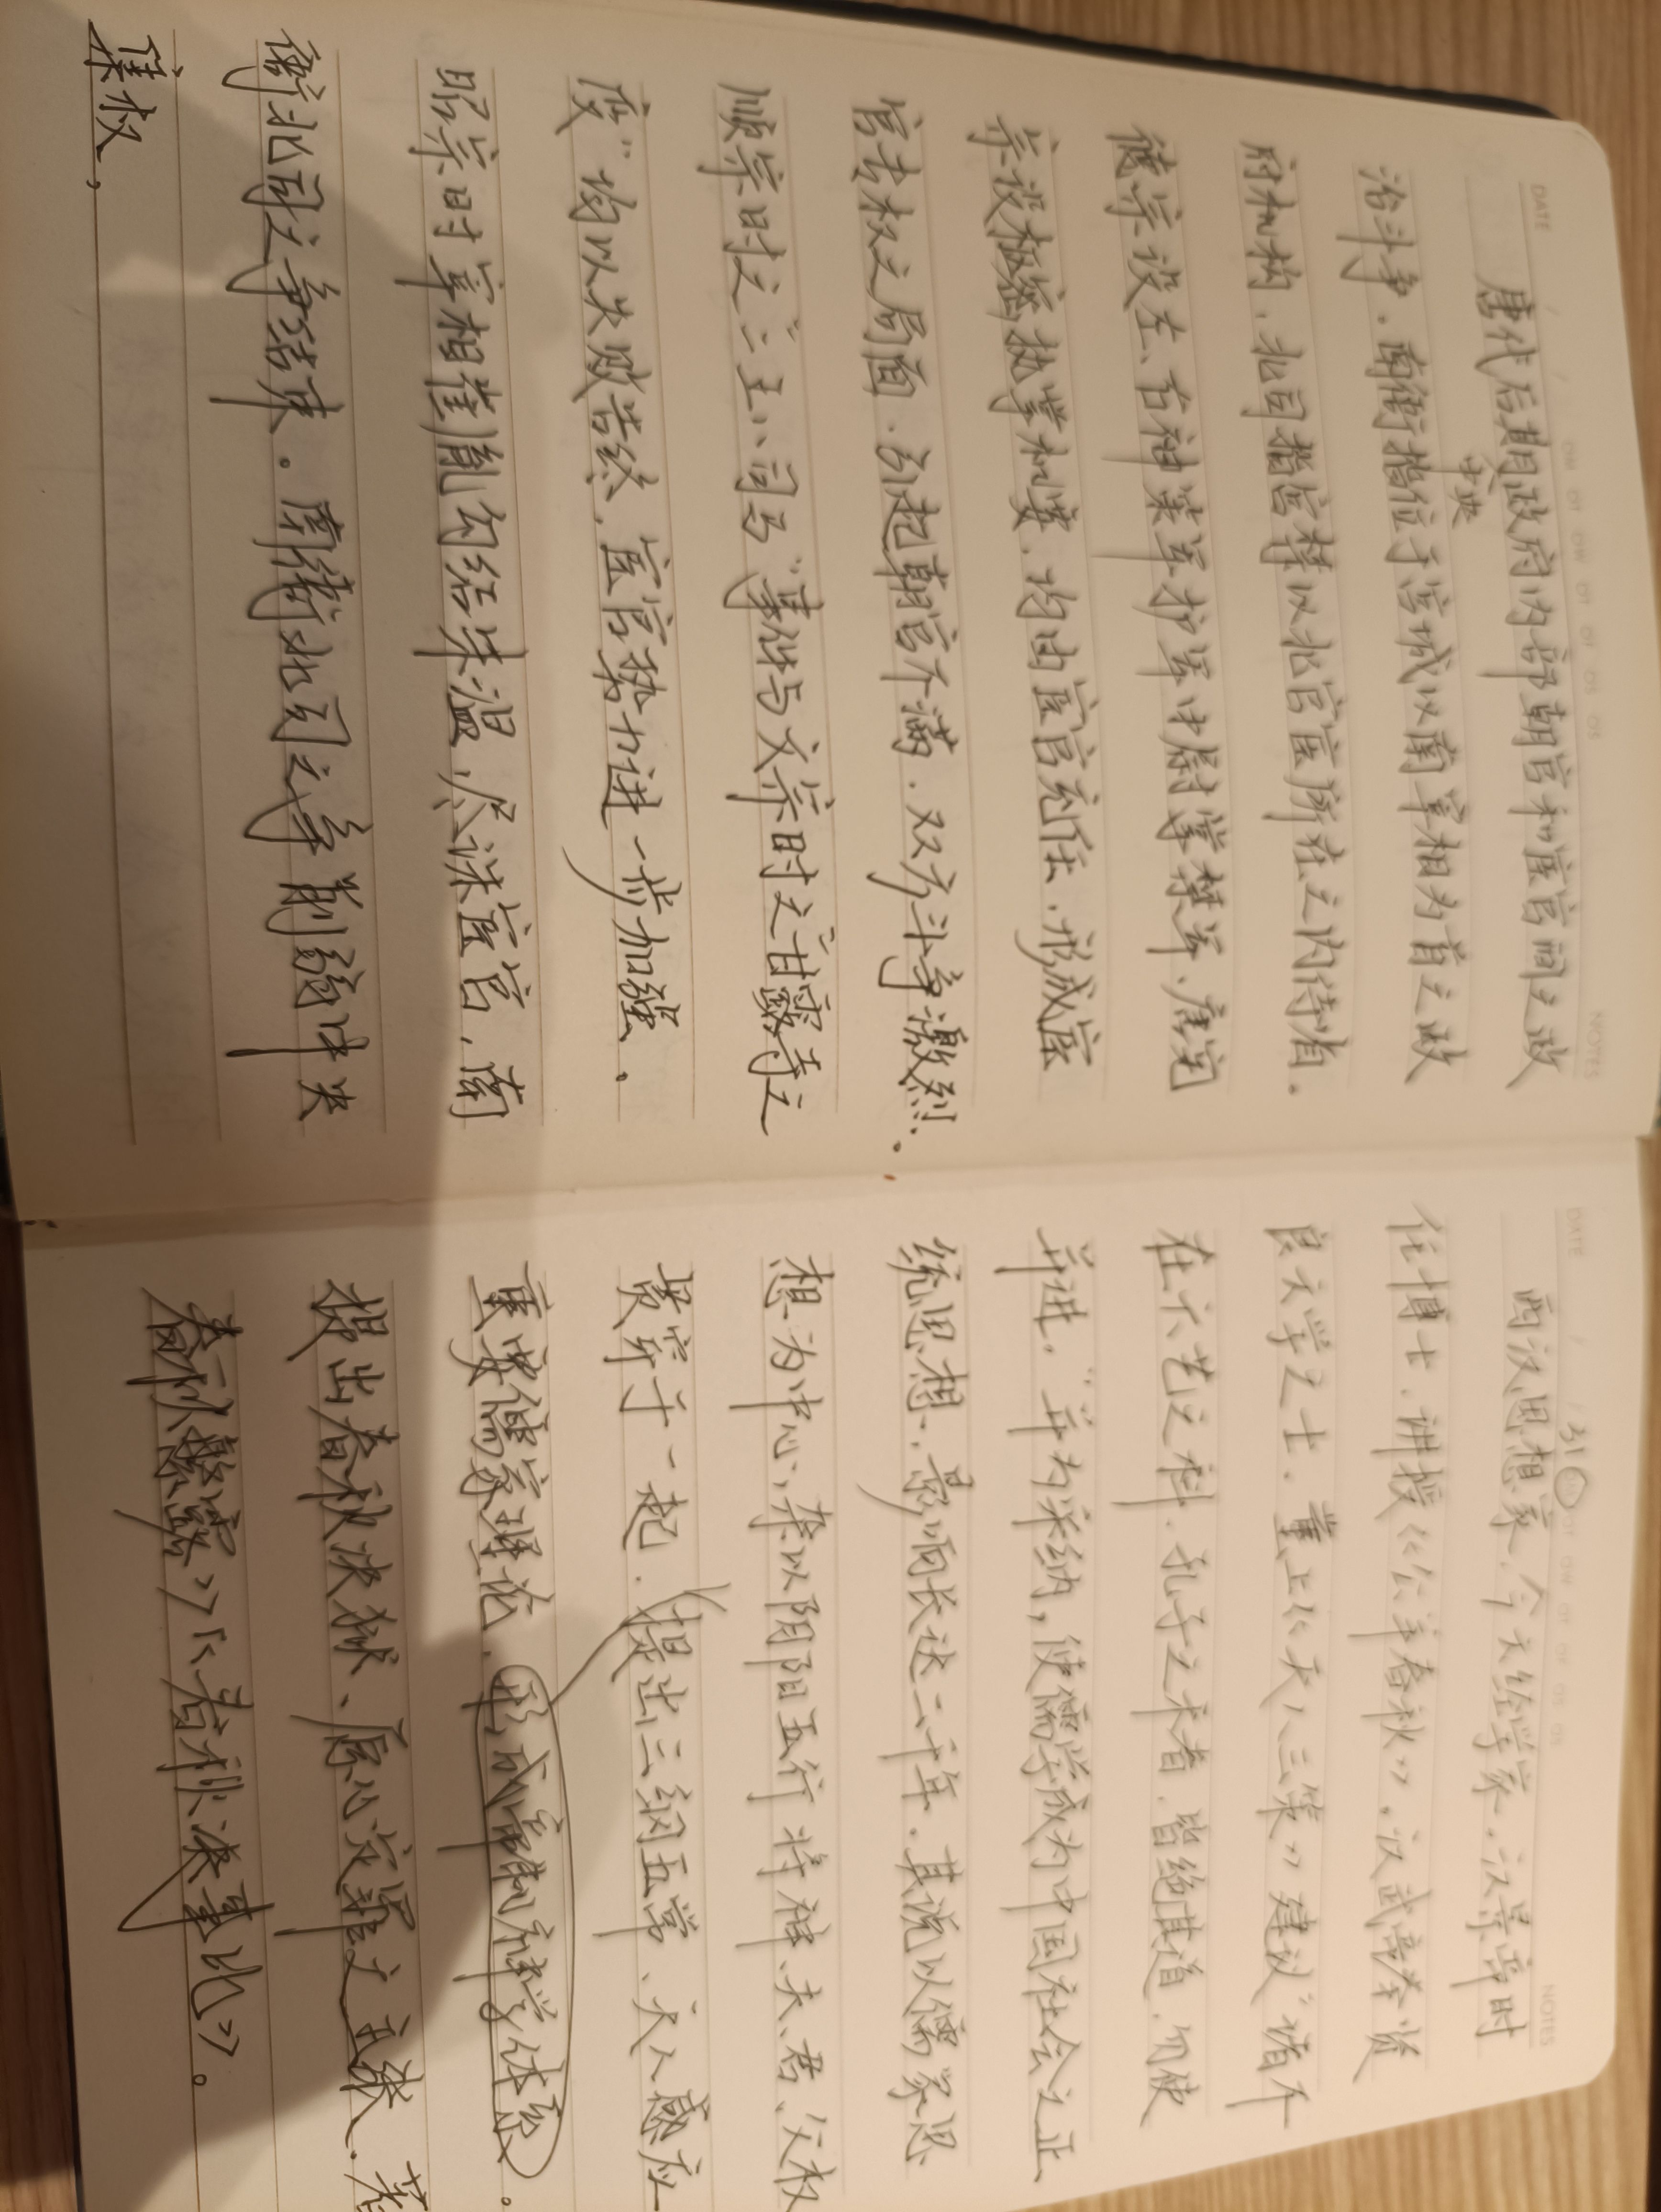 DATE
NOTES
唐代后期政府内部朝官和宦官间之政
中央
治斗争，南衙指位于宫城以南宰相为首之政
府机构，北司指宫禁以北宦官所在之内侍省。
德宗设左、右神策军护军中尉掌禁军，唐宪
宗设枢密执掌机要，均由宦官充任，形成宦
官专权之局面，引起朝官不满，双方斗争激烈．
顺宗时之“二王八司马”事件与文宗时之“甘露之
变”均以失败告终，宦官势力进一步加强。
昭宗时宰相崔胤勾结朱温，尽诛宦官，南
衙北司之争结束。南衙北司之争削弱中央
集权，
DATE
31
NOTES
西汉思想家，今文经学家，汉景帝时
任博士，讲授《公羊春秋》，汉武帝举贤
良文学之士，董上《天人三策》建议“诸不
在六艺之科，孔子之术者，皆绝其道，勿使
并进，”并为采纳，使儒学成为中国社会之正
统思想，影响长达二千年，其说以儒家思
想为中心，杂以阴阳五行将神、夫、君、父权
贯穿于一起，提出三纲五常、天人感应
重要儒家理论，形成帝制神学体系。
提出春秋决狱、原心定罪之主张，著
春秋繁露》《春秋决事比》。